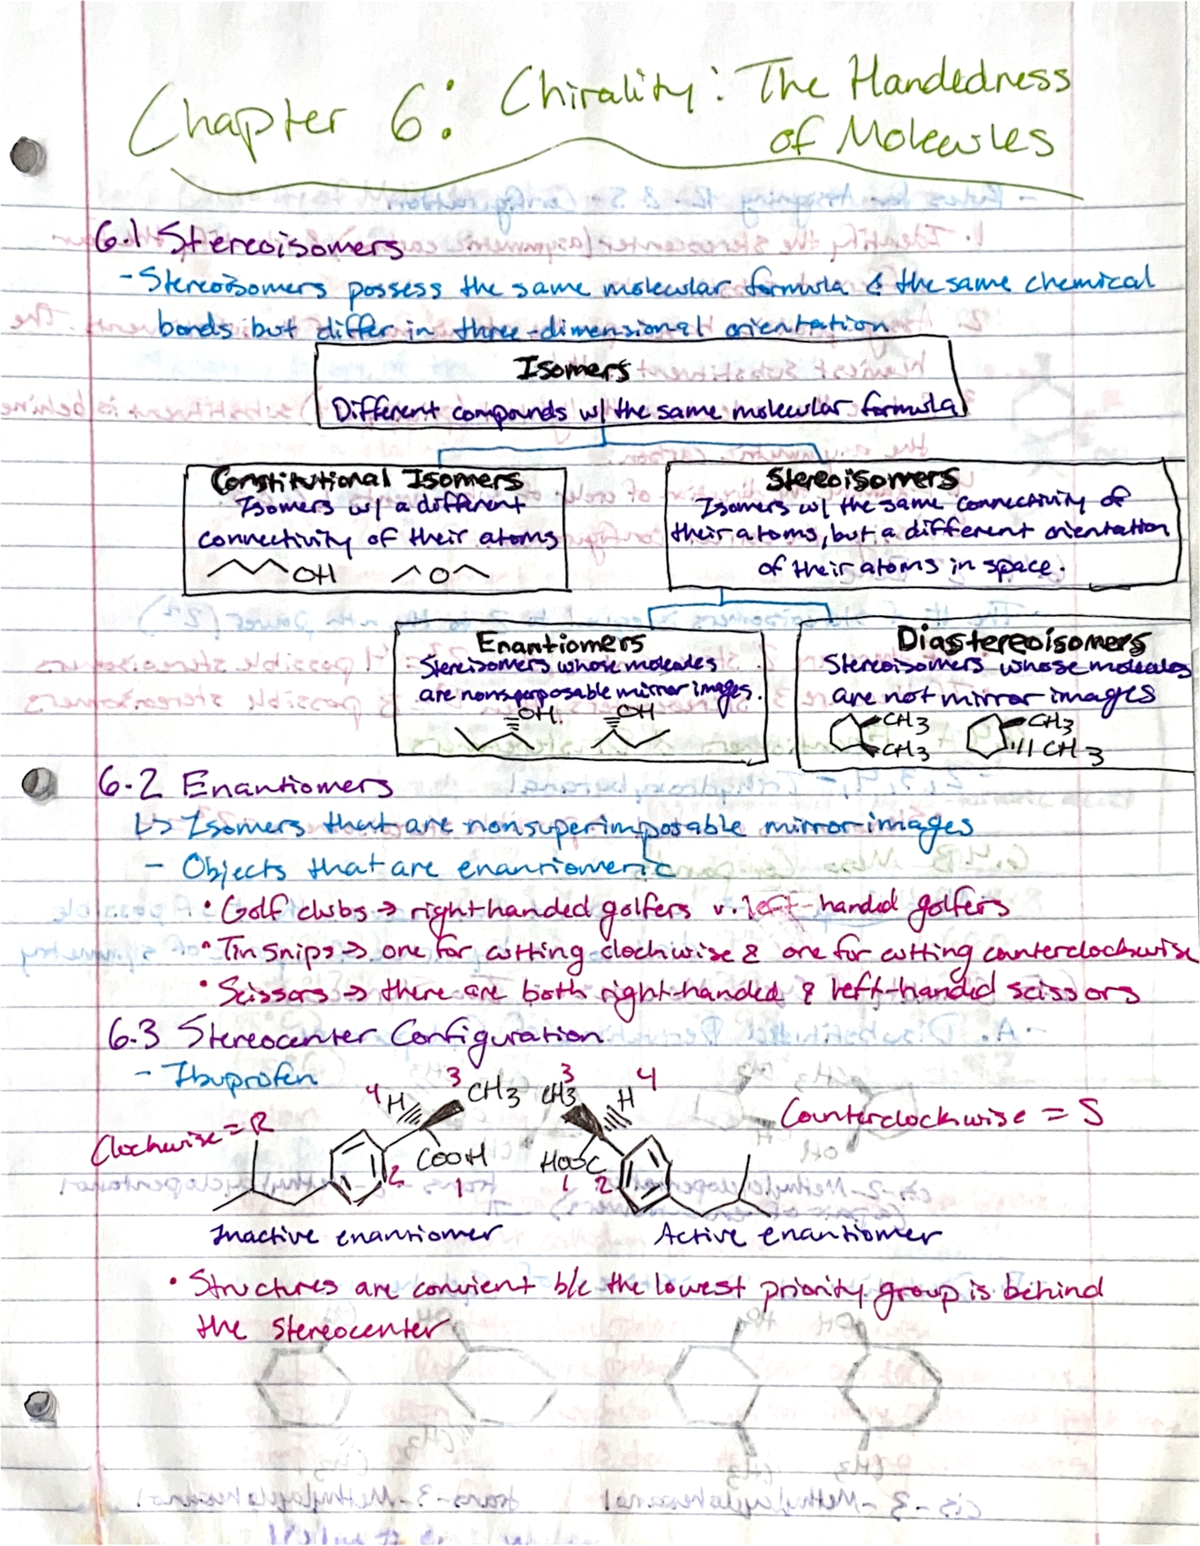 Chapter 6: Chirality: The Handedness
of Molecules
6.1 Stereoisomers
- Stereoisomers possess the same molecular formula & the same chemical
bonds but differ in three-dimensional orientation
Isomers
Different compounds w/ the same molecular formula
Constitutional Isomers
Isomers w/ a different
connectivity of their atoms
OH O
Stereoisomers
Isomers w/ the same connectivity of
their atoms, but a different orientation
of their atoms in space.
Enantiomers
Stereisomers whose molecules
are nonsuperposable mirror images.
OH OH
Diastereoisomers
Stereoisomers whose molecules
are not mirror images
CH3 CH3
CH3 CH3
6.2 Enantiomers
↳ Isomers that are nonsuperimposable mirror-images
- Objects that are enantiomeric
• Golf clubs → right handed golfers v. left-handed golfers
• Tin Snips → one for cutting clockwise & one for cutting counterclockwise
• Scissors → there are both right-handed & left-handed scissors
6.3 Stereocenter Configuration
- Ibuprofen
4 H 3 CH3 3 CH3 H 4
Clockwise = R Counterclockwise = S
2 COOH 1 HOOC 1 2
Inactive enantiomer Active enantiomer
• Structures are convient b/c the lowest priority group is behind
the stereocenter